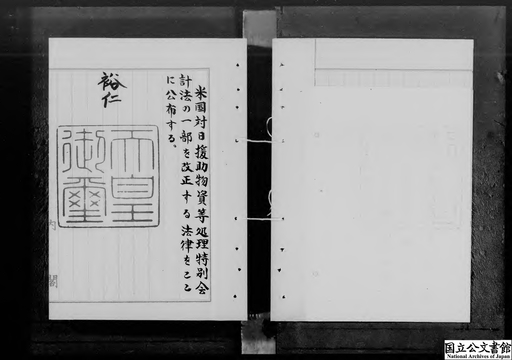 米国対日援助物資等処理特別会
計法の一部を改正する法律をここ
に公布する。
裕仁
天皇
御璽
内閣
国立公文書館
National Archives of Japan